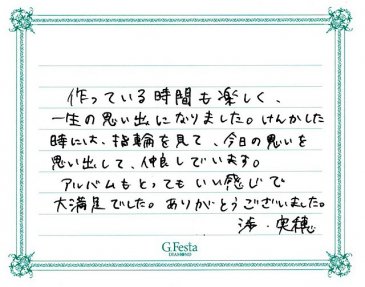 作っている時間も楽しく、
一生の思い出になりました。けんかした
時には、指輪を見て、今日の思いを
思い出して、仲良しでいます。
アルバムもとってもいい感じで
大満足でした。ありがとうございました。
海・実穂
G.Festa
DIAMOND